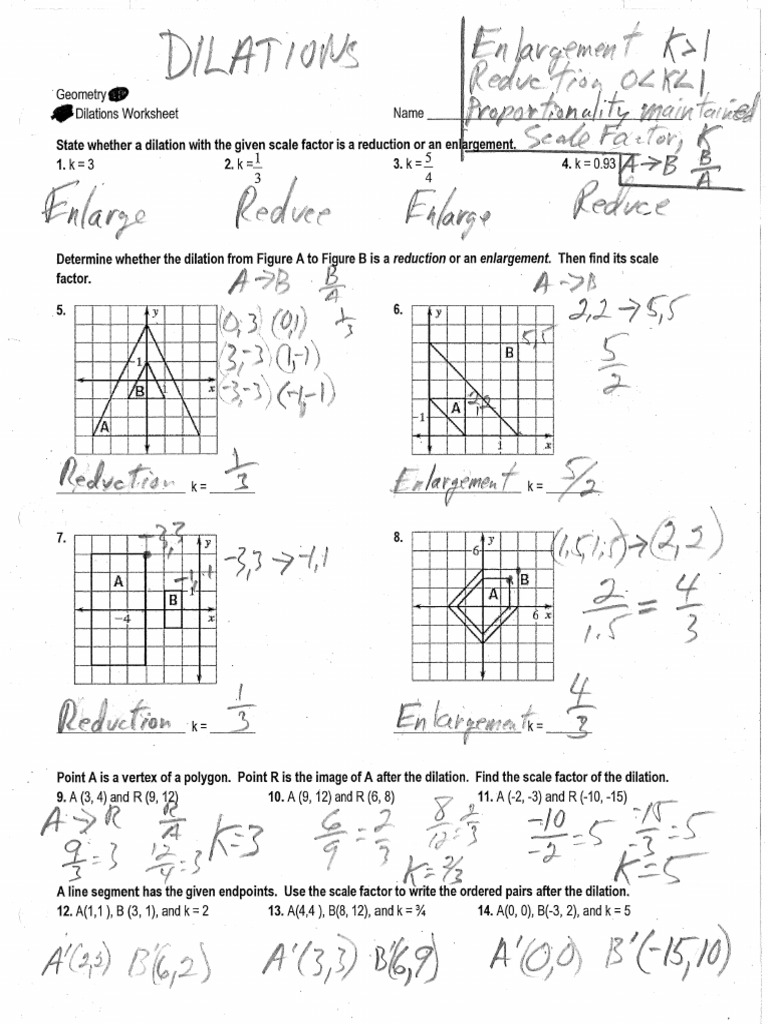 DILATIONS
Enlargement K>1
Reduction 0<K<1
Proportionality maintained
Scale Factor, K
A→B B/A
Geometry
Dilations Worksheet
Name
State whether a dilation with the given scale factor is a reduction or an enlargement.
1. k = 3 2. k = 1/3 3. k = 5/4 4. k = 0.93
Enlarge Reduce Enlarge Reduce
Determine whether the dilation from Figure A to Figure B is a reduction or an enlargement. Then find its scale
factor.
A→B B/A A→B
5. y 1 B 1 x A
(0,3) (0,1) 1/3
(3,-3) (1,-1)
(-3,-3) (-1,-1)
6. y 5,5 B A -1 1 x
2,2 → 5,5
5/2
Reduction k = 1/3 Enlargement k = 5/2
7. -3,3 y A -1,1 B 1 -4 x
-3,3 → -1,1
8. y 6 B A 6 x
(1.5,1.5)→(2,2)
2/1.5 = 4/3
Reduction k = 1/3 Enlargement k = 4/3
Point A is a vertex of a polygon. Point R is the image of A after the dilation. Find the scale factor of the dilation.
9. A (3, 4) and R (9, 12) 10. A (9, 12) and R (6, 8) 11. A (-2, -3) and R (-10, -15)
A→R R/A
9/3 = 3 12/4 = 3 K=3
6/9 = 2/3 8/12 = 2/3
K=2/3
-10/-2 = 5 -15/-3 = 5
K=5
A line segment has the given endpoints. Use the scale factor to write the ordered pairs after the dilation.
12. A(1,1 ), B (3, 1), and k = 2 13. A(4,4 ), B(8, 12), and k = ¾ 14. A(0, 0), B(-3, 2), and k = 5
A'(2,2) B'(6,2) A'(3,3) B'(6,9) A'(0,0) B'(-15,10)